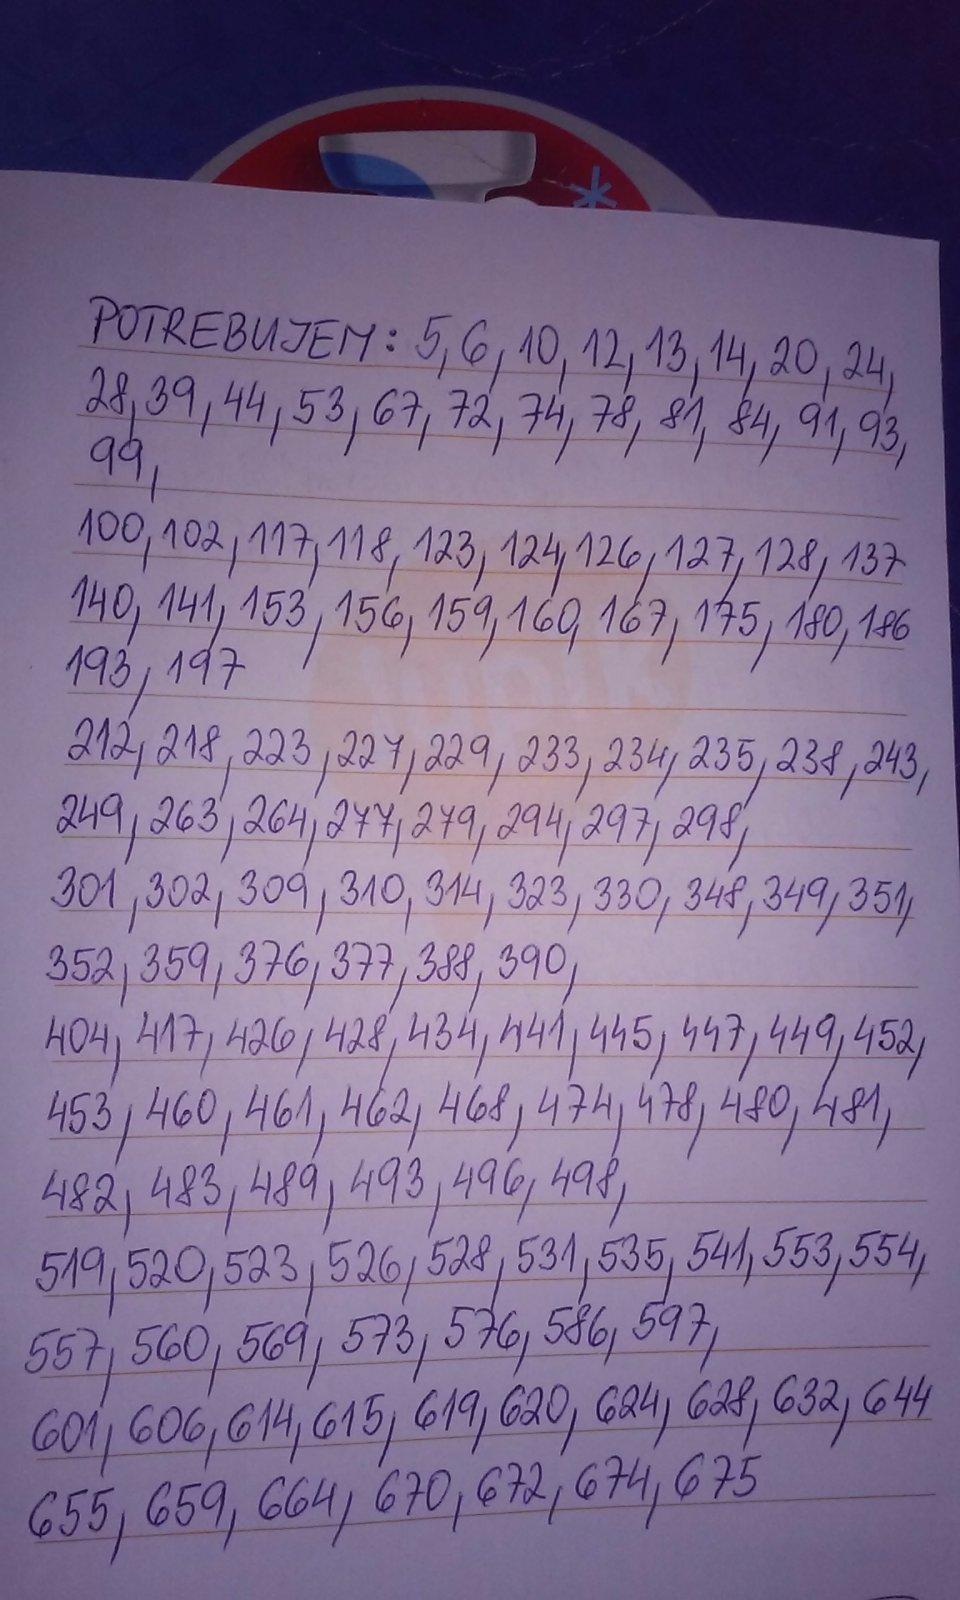 POTREBUJEM: 5, 6, 10, 12, 13, 14, 20, 24,
28, 39, 44, 53, 67, 72, 74, 78, 81, 84, 91, 93,
99,
100, 102, 117, 118, 123, 124, 126, 127, 128, 137
140, 141, 153, 156, 159, 160, 167, 175, 180, 186
193, 197
212, 218, 223, 227, 229, 233, 234, 235, 238, 243,
249, 263, 264, 277, 279, 294, 297, 298,
301, 302, 309, 310, 314, 323, 330, 348, 349, 351,
352, 359, 376, 377, 388, 390,
404, 417, 426, 428, 434, 441, 445, 447, 449, 452,
453, 460, 461, 462, 468, 474, 478, 480, 481,
482, 483, 489, 493, 496, 498,
519, 520, 523, 526, 528, 531, 535, 541, 553, 554,
557, 560, 569, 573, 576, 586, 597,
601, 606, 614, 615, 619, 620, 624, 628, 632, 644
655, 659, 664, 670, 672, 674, 675